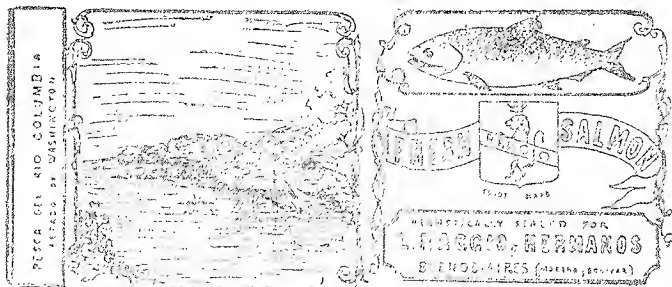 PESCA DEL RIO COLUMBIA
ESTADO DE WASHINGTON
FRESH SALMON
TRADE MARK
HERMETICALLY SEALED FOR
L. MAGGIO, HERMANOS
BUENOS-AIRES (MORENO y BOLIVAR)